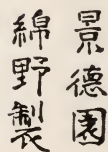 景德園
綿野製